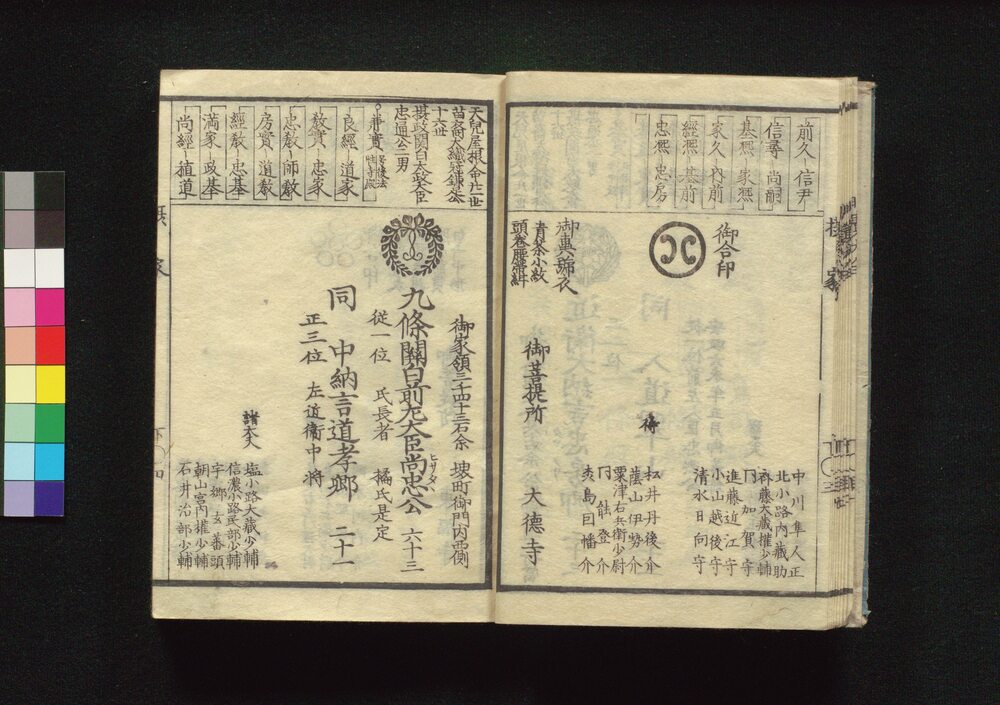 前久 信尹
信尋 尚嗣
基熈 家熈
家久 内前
經熈 基前
忠熈 忠房
御合印
御輿舁衣
青茶小紋
頭巻腰帶紺
御菩提所
大德寺
中川隼人正
北小路内藏助
齊藤大藏權少輔
加賀守
進藤近江守
小山越後守
清水日向守
侍
松井丹後介
蔭山伊勢介
粟津右兵衛少尉
能登介
夾島因幡介
天兒屋根命廿一世
苗裔大織冠鎌足公
十六世
攝政關白太政大臣
忠通公二男
兼實
良經 道家
教實 忠家
忠教 師教
房實 道教
經教 忠基
滿家 政基
尚經 植道
御家領三千四十三石余 堺町御門内西側
九條關白前左大臣尚忠公 六十三
ヒサタヾ
從一位 氏長者 橘氏是定
同 中納言道孝卿 二十一
正三位 左近衛中將
諸大夫
塩小路大藏少輔
信濃小路民部少輔
宇郷玄蕃頭
朝山宮内權少輔
石井治部少輔
攝家